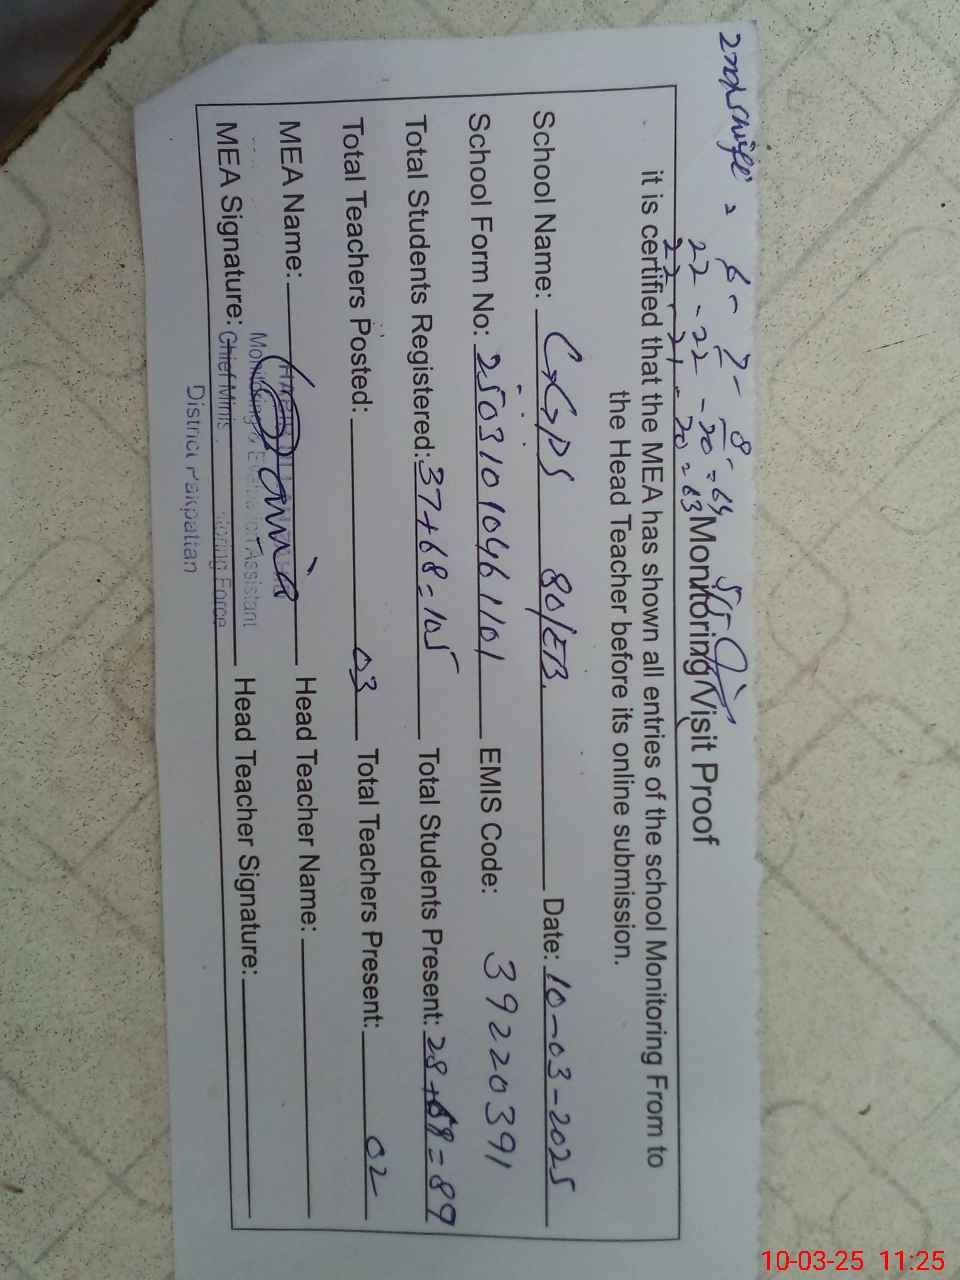 2nd shift = 6 - 7 - 8 -
22 - 22 - 20 = 64
22 - 21 - 20 = 63
Monitoring Visit Proof
it is certified that the MEA has shown all entries of the school Monitoring From to
the Head Teacher before its online submission.
School Name: GGPS 80/EB. Date: 10-03-2025
School Form No: 25031010461101 EMIS Code: 39220391
Total Students Registered: 37+68=105 Total Students Present: 28+68=89
Total Teachers Posted: 03 Total Teachers Present: 02
MEA Name: Head Teacher Name:
Assistant
MEA Signature: Head Teacher Signature:
Chief Minis Force
District Pakpattan
10-03-25 11:25